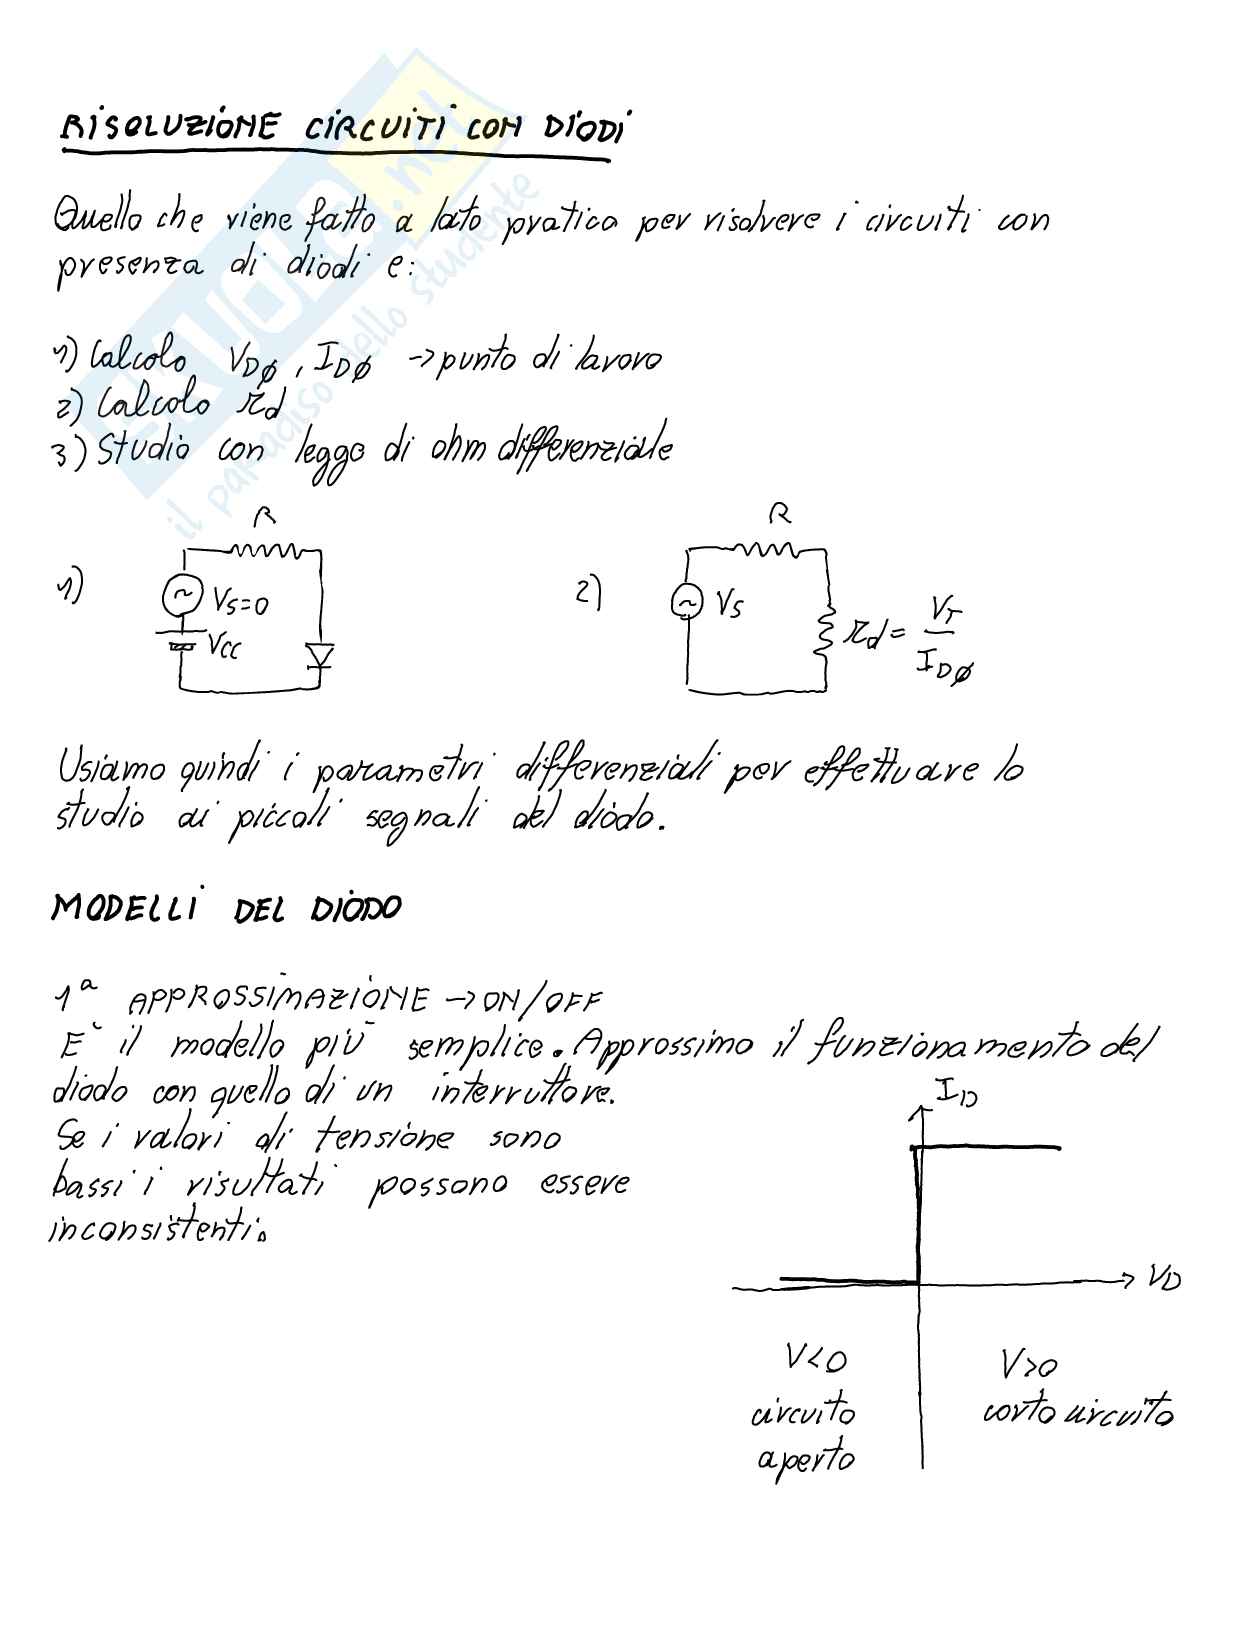 RISOLUZIONE CIRCUITI CON DIODI
Quello che viene fatto a lato pratico per risolvere i circuiti con
presenza di diodi e:
1) Calcolo VD∅, ID∅ → punto di lavoro
2) Calcolo rd
3) Studio con legge di ohm differenziale
1)
R
VS=0
VCC
2)
R
VS
rd = VT / ID∅
Usiamo quindi i parametri differenziali per effettuare lo
studio ai piccoli segnali del diodo.
MODELLI DEL DIODO
1ª APPROSSIMAZIONE → ON/OFF
E` il modello più semplice. Approssimo il funzionamento del
diodo con quello di un interruttore.
Se i valori di tensione sono
bassi i risultati possono essere
inconsistenti.
ID
VD
V<0
circuito
aperto
V>0
corto circuito
SKUOLA.net
il paradiso dello studente